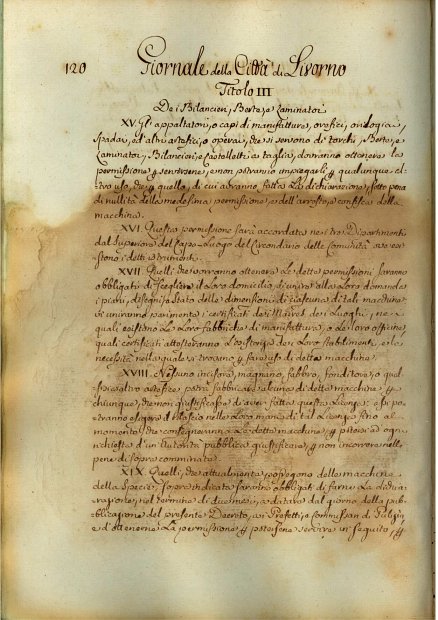 120 Giornale della Città di Livorno
Titolo III
De i Bilancieri, Berte, e Laminator
XV. Gli appaltatori, o capi di manufatture, orefici, orologia,
Spadar, ed altri artefici, o operai, che si servono di torchi, Berte, e
Laminator, Bilancieri, e Castelletti a taglio, dovranno ottenere la
permissione, e non potranno impiegarli qualunque al=
tro uso, che quello, di cui avranno fatta la dichiarazione, sotto pena
di nullità della medesima permissione, e dell'arresto, e confisca della
macchina.
XVI. Questa permissione sarà accordata nei tre Dipartimenti
dal Superiore del Capo-Luogo del Circondario delle Comunità ove esi=
stono i detti istrumenti.
XVII. Quelli che vorranno ottenere le dette permissioni saranno
obbligati di scegliere il loro domicilio, di unire alla loro domanda
i piani, disegni, e stato delle dimensioni di ciascuna di tali macchine
di uniranno parimente i certificati dei Maires dei Luoghi, ne i
quali esistono le loro fabbriche di manifattura, o le loro officine,
quali certificati attesteranno l'esistenza dei loro stabilimenti, e la
necessità nella quale si trovano di fare uso di dette macchine.
XVIII. Nessuno incisore, magnano, fabbro, fonditore, o qual=
sisia altro artefice, potrà fabbricare alcuna di dette macchine
chiunque, che non giustificasse di aver fatta questa licenza: essi po=
tranno esigere il rilascio nelle loro mani di tal licenza fino al
momento, che consegneranno le dette macchine, potersi ad ogni
richiesta d'un'Autorità pubblica giustificare, non incorrere nelle
pene di sopra comminate.
XIX. Quelli, che attualmente posseggono delle macchine
della Specie, sopra indicata saranno obbligati di farne la dichia=
razione, nel termine di due mesi, a datare dal giorno della pub=
blicazione del presente Decreto, ai Prefetti, o Commissari di Pulizia
e d'ottenerne la permissione potersene servire in seguito,